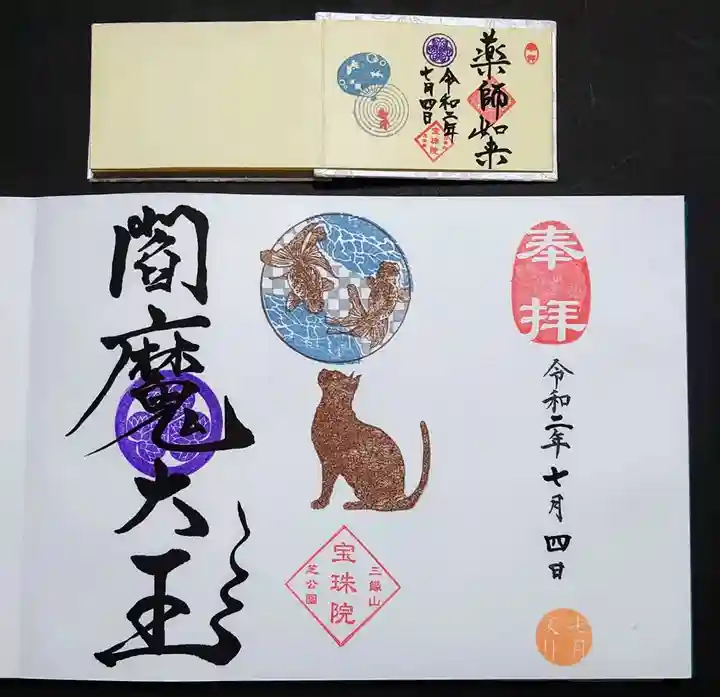 奉拝
薬師如来
令和二年
七月四日
宝珠院
奉拝
令和二年七月四日
七月
三縁山
宝珠院
芝公園
閻魔大王